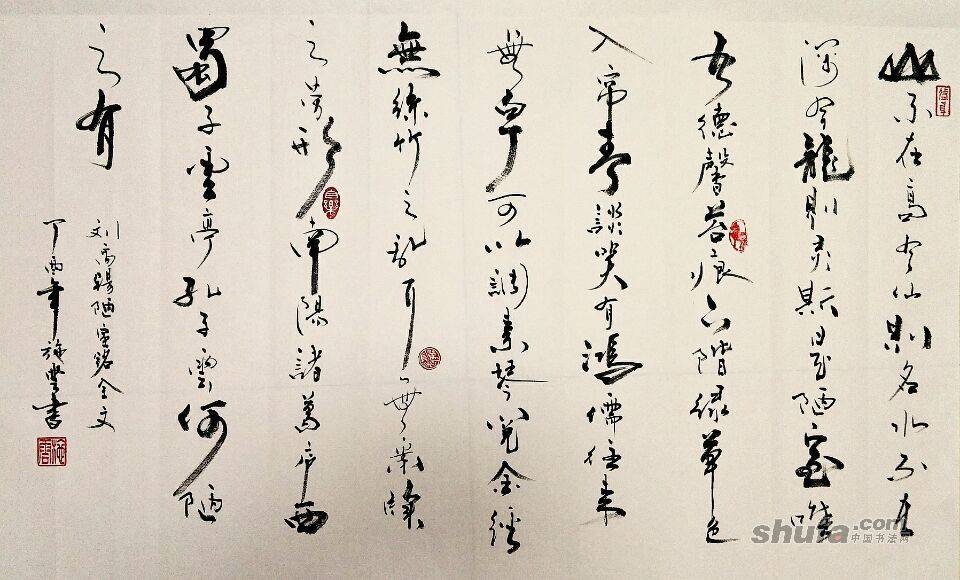 山不在高有仙則名水不在
深有龍則灵斯是陋室唯
吾德馨苔痕上階緑草色
入帘青談笑有鴻儒往来
無白丁可以調素琴閲金經
無絲竹之乱耳無案牘
之劳形南陽諸葛庐西
蜀子雲亭孔子雲何陋
之有
刘禹錫陋室銘全文
丁酉年施書
shufa.com
中国书法网